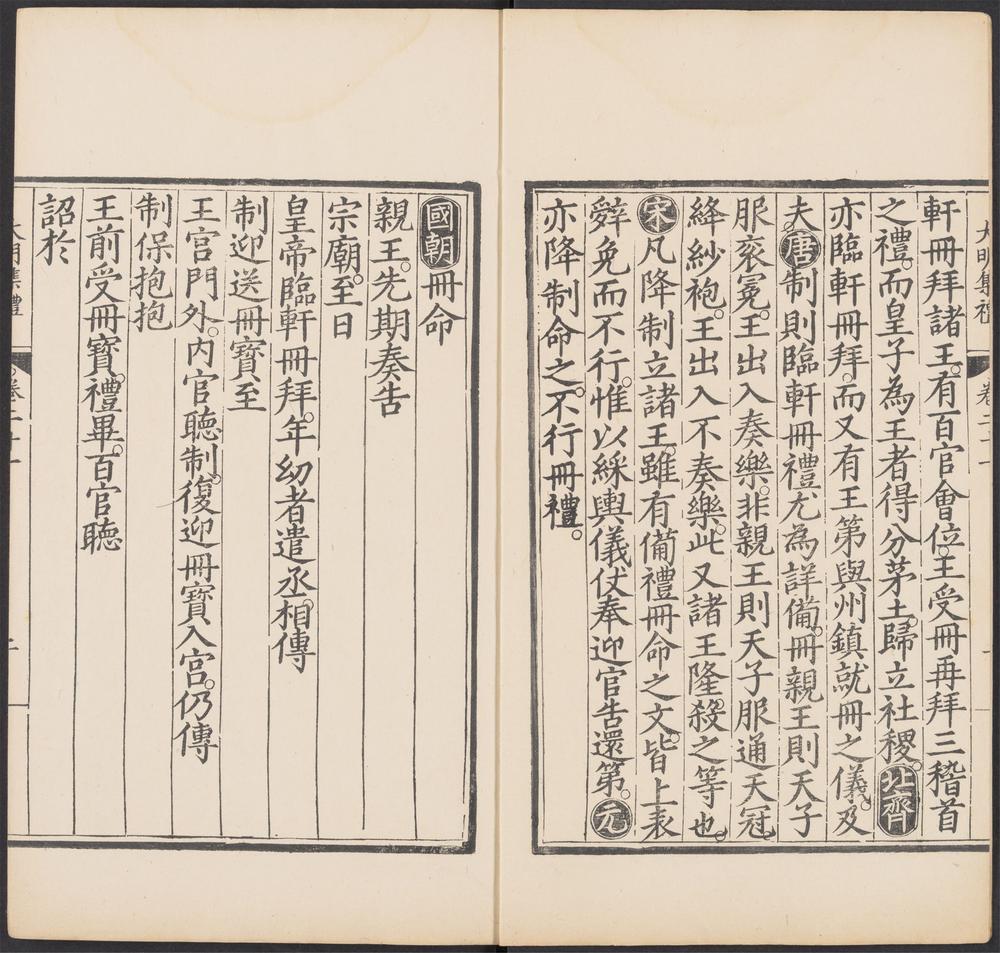 大明集禮 卷二十
軒冊拜諸王。有百官會位。王受冊再拜三稽首
之禮。而皇子為王者得分茅土。歸立社稷。北齊
亦臨軒冊拜。而又有王第與州鎮就冊之儀。及
夫。唐制則臨軒冊禮尤為詳備。冊親王則天子
服衮冕。王出入奏樂。非親王則天子服通天冠。
絳紗袍。王出入不奏樂。此又諸王隆殺之等也。
宋凡降制立諸王。雖有備禮冊命之文。皆上表
辤免而不行。惟以綵輿儀仗奉迎官告還第。元
亦降制命之。不行冊禮。
國朝冊命
親王。先期奏告
宗廟。至日
皇帝臨軒冊拜。年幼者遣丞相傳
制迎送冊寶至
王宮門外。內官聽制。復迎冊寶入宮。仍傳
制保抱抱
王前受冊寶。禮畢。百官聽
詔於
大明集禮 卷二十 二